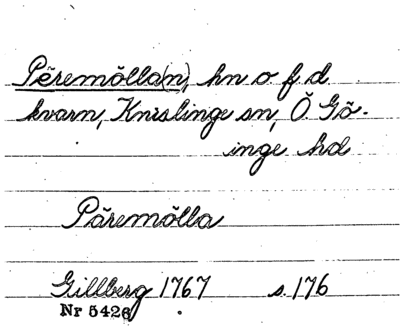 Péremölla(n), hn o f d
kvarn, Knislinge sn, Ö. Gö-
inge hd
Päremölla
Gillberg 1767 s. 176
Nr 5426